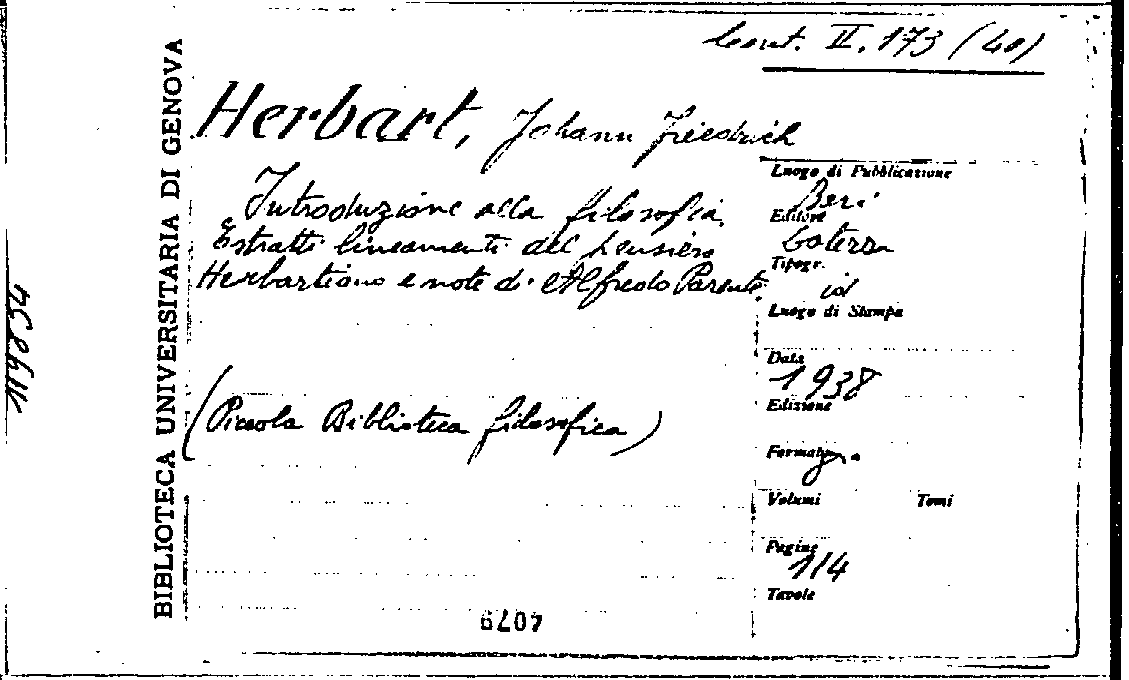 Cont. II. 173 (40)
BIBLIOTECA UNIVERSITARIA DI GENOVA
Herbart, Johann Friedrich
Introduzione alla filosofia.
Estratti lineamenti del pensiero
Herbartiano e note di Alfredo Parente.
(Piccola Biblioteca filosofica)
Luogo di Pubblicazione
Bari
Editore
Laterza
Tipogr.
id
Luogo di Stampa
Data
1938
Edizione
Formato
Volumi Tomi
Pagine
114
Tavole
4079